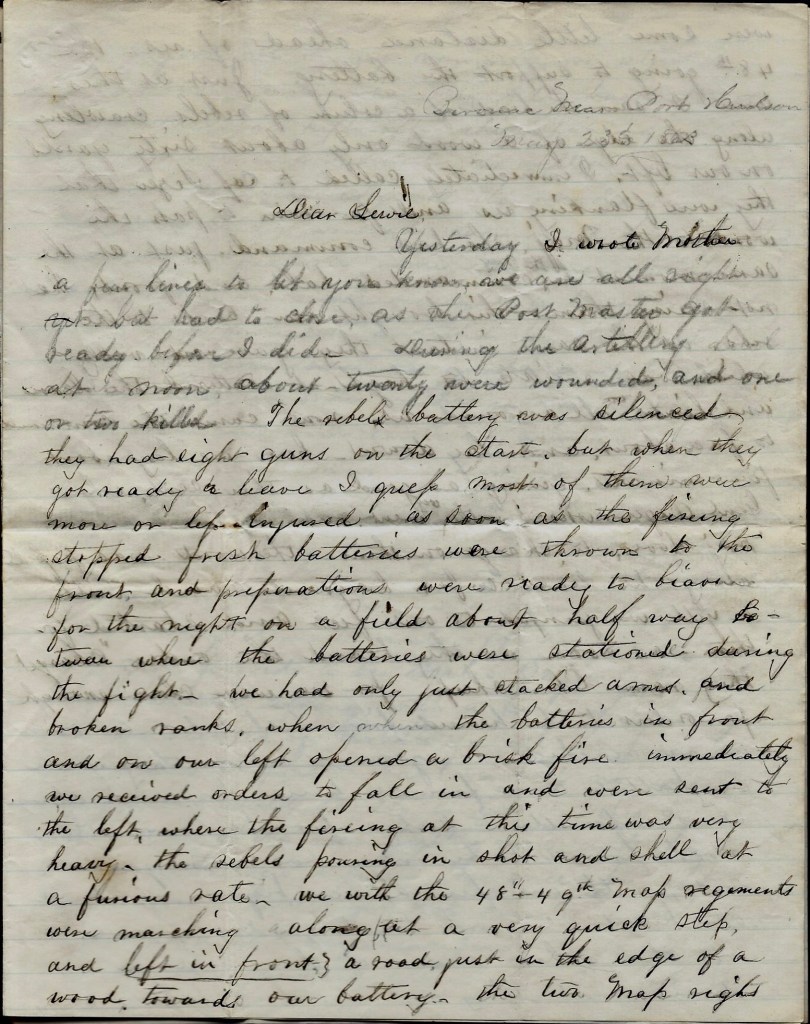 Near Port Hudson
May 23d 1863
Dear Lewie
Yesterday I wrote Mother
a few lines to let you know, we are all right
yet but had to close, as the Post Master got
ready before I did - During the artillery
at noon, about twenty were wounded, and one
or two killd The rebels battery was silenced
they had eight guns on the start, but when they
got ready a leave I guess most of them were
more or less Injured as soon as the fireing
stopped fresh batteries were thrown to the
front and preparations were ready to
for the night on a field about half way be-
tween where the batteries were stationed during
the fight - we had only just stacked arms, and
broken ranks, when when the batteries in front
and on our left opened a brisk fire immediately
we received orders to fall in and were sent to
the left, where the fireing at this time was very
heavy - the rebels pouring in shot and shell at
a furious rate - we with the 48th & 49th Mass regements
were marching along (at a very quick step,
and left in front) a road just in the edge of a
wood, towards our battery - the two Mass right